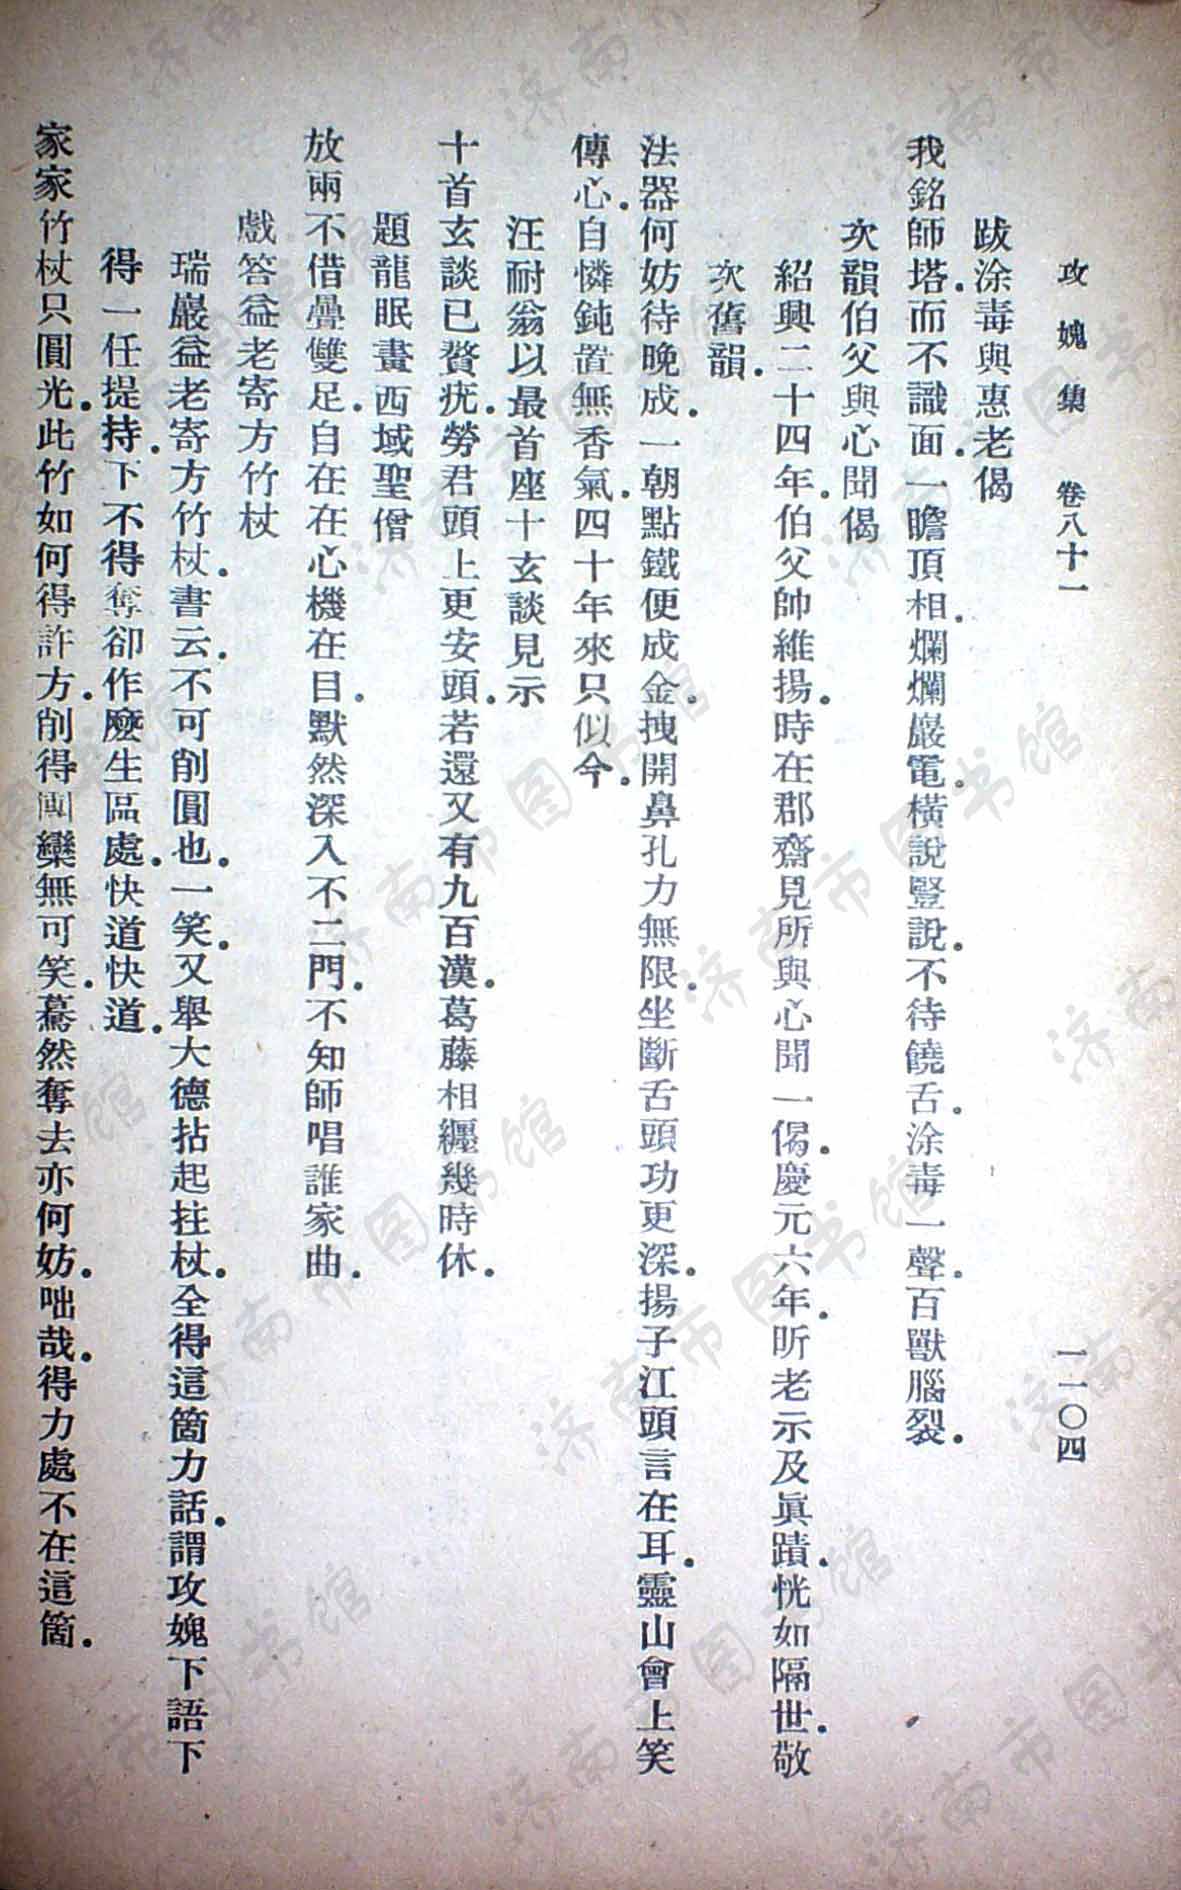 攻媿集 卷八十一 一一〇四
跋涂毒與惠老偈
我銘師塔.而不識面.一瞻頂相.爛爛巖電.橫說豎說.不待饒舌.涂毒一聲.百獸腦裂.
次韻伯父與心聞偈
紹興二十四年.伯父帥維揚.時在郡齋見所與心聞一偈.慶元六年.昕老示及眞蹟.恍如隔世.敬
次舊韻.
法器何妨待晚成.一朝點鐵便成金.拽開鼻孔力無限.坐斷舌頭功更深.揚子江頭言在耳.靈山會上笑
傳心.自憐鈍置無香氣.四十年來只似今.
汪耐翁以最首座十玄談見示
十首玄談已贅疣.勞君頭上更安頭.若還又有九百漢.葛藤相纏幾時休.
題龍眠畫西域聖僧
放兩不借疊雙足.自在在心機在目.默然深入不二門.不知師唱誰家曲.
戲答益老寄方竹杖
瑞巖益老寄方竹杖.書云.不可削圓也.一笑.又舉大德拈起拄杖.全得這箇力話.謂攻媿下語下
得一任提持.下不得奪卻作麼生區處.快道快道.
家家竹杖只圓光.此竹如何得許方.削得團欒無可笑.驀然奪去亦何妨.咄哉.得力處不在這箇.
济南市图书馆